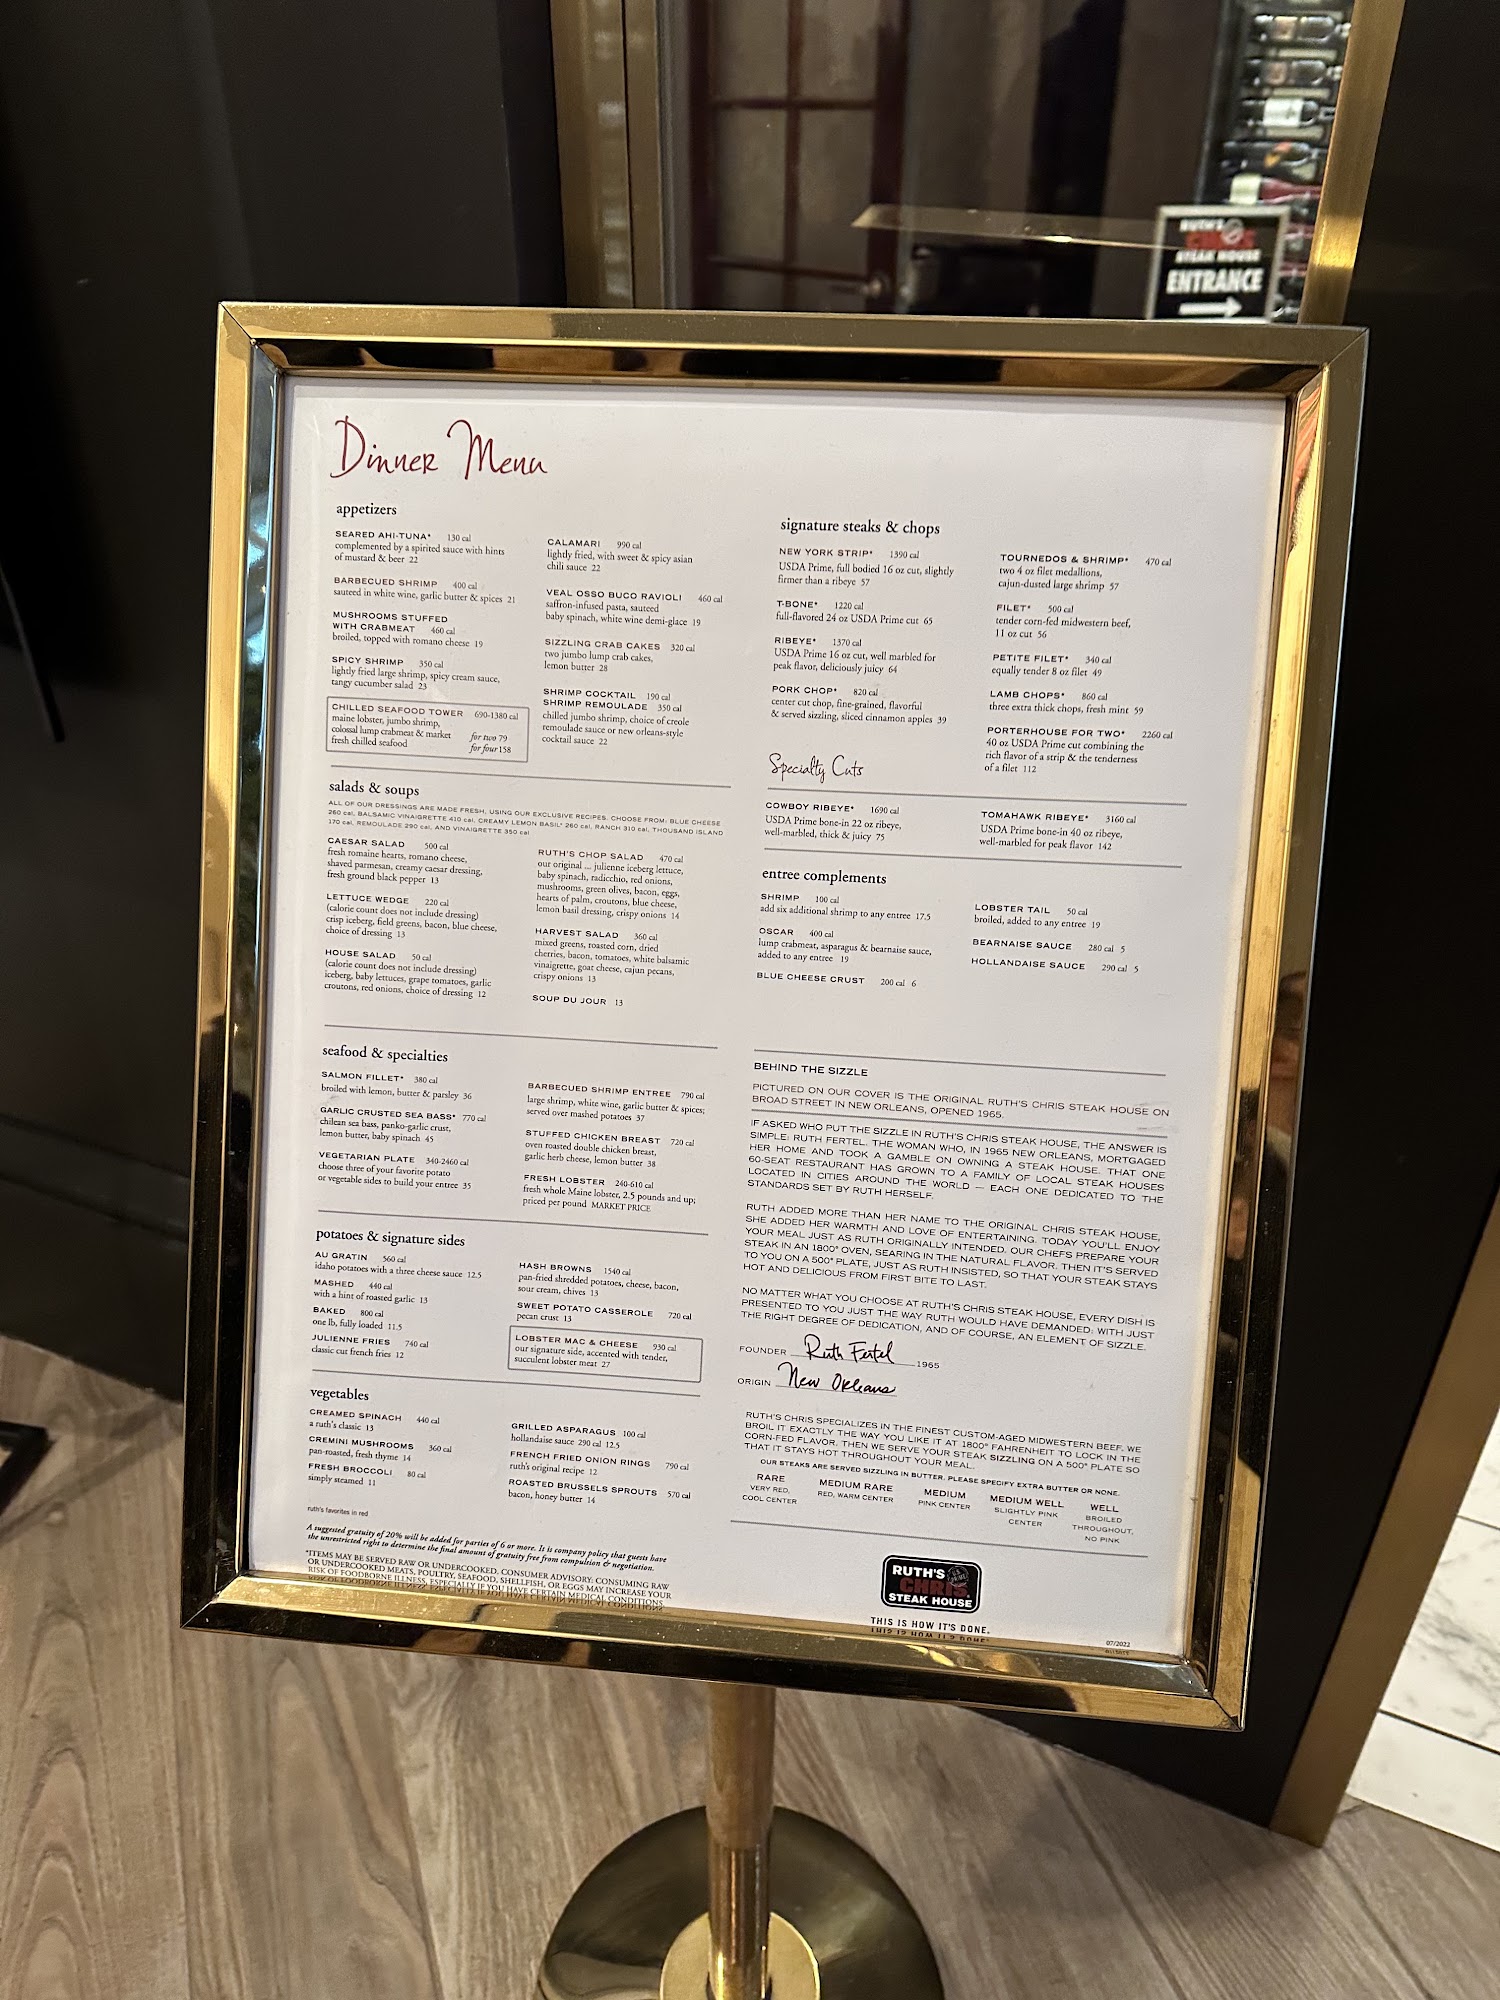 RUTH'S
CHRIS
STEAK HOUSE
ENTRANCE
Dinner Menu
appetizers
SEARED AHI-TUNA* 130 cal
complemented by a spirited sauce with hints
of mustard & beer 22
BARBECUED SHRIMP 400 cal
sauteed in white wine, garlic butter & spices 21
MUSHROOMS STUFFED
WITH CRABMEAT 460 cal
broiled, topped with romano cheese 19
SPICY SHRIMP 350 cal
lightly fried large shrimp, spicy cream sauce,
tangy cucumber salad 23
CHILLED SEAFOOD TOWER 690-1380 cal
maine lobster, jumbo shrimp,
colossal lump crabmeat & market for two 79
fresh chilled seafood for four 158
CALAMARI 990 cal
lightly fried, with sweet & spicy asian
chili sauce 22
VEAL OSSO BUCO RAVIOLI 460 cal
saffron-infused pasta, sauteed
baby spinach, white wine demi-glace 19
SIZZLING CRAB CAKES 320 cal
two jumbo lump crab cakes,
lemon butter 28
SHRIMP COCKTAIL 190 cal
SHRIMP REMOULADE 350 cal
chilled jumbo shrimp, choice of creole
remoulade sauce or new orleans-style
cocktail sauce 22
salads & soups
ALL OF OUR DRESSINGS ARE MADE FRESH, USING OUR EXCLUSIVE RECIPES. CHOOSE FROM: BLUE CHEESE
260 cal, BALSAMIC VINAIGRETTE 410 cal, CREAMY LEMON BASIL* 260 cal, RANCH 310 cal, THOUSAND ISLAND
170 cal, REMOULADE 290 cal, AND VINAIGRETTE 350 cal
CAESAR SALAD 500 cal
fresh romaine hearts, romano cheese,
shaved parmesan, creamy caesar dressing,
fresh ground black pepper 13
LETTUCE WEDGE 220 cal
(calorie count does not include dressing)
crisp iceberg, field greens, bacon, blue cheese,
choice of dressing 13
HOUSE SALAD 50 cal
(calorie count does not include dressing)
iceberg, baby lettuces, grape tomatoes, garlic
croutons, red onions, choice of dressing 12
RUTH'S CHOP SALAD 470 cal
our original ... julienne iceberg lettuce,
baby spinach, radicchio, red onions,
mushrooms, green olives, bacon, eggs,
hearts of palm, croutons, blue cheese,
lemon basil dressing, crispy onions 14
HARVEST SALAD 360 cal
mixed greens, roasted corn, dried
cherries, bacon, tomatoes, white balsamic
vinaigrette, goat cheese, cajun pecans,
crispy onions 13
SOUP DU JOUR 13
seafood & specialties
SALMON FILLET* 380 cal
broiled with lemon, butter & parsley 36
GARLIC CRUSTED SEA BASS* 770 cal
chilean sea bass, panko-garlic crust,
lemon butter, baby spinach 45
VEGETARIAN PLATE 340-2460 cal
choose three of your favorite potato
or vegetable sides to build your entree 35
BARBECUED SHRIMP ENTREE 790 cal
large shrimp, white wine, garlic butter & spices;
served over mashed potatoes 37
STUFFED CHICKEN BREAST 720 cal
oven roasted double chicken breast,
garlic herb cheese, lemon butter 38
FRESH LOBSTER 240-610 cal
fresh whole Maine lobster, 2.5 pounds and up;
priced per pound MARKET PRICE
potatoes & signature sides
AU GRATIN 560 cal
idaho potatoes with a three cheese sauce 12.5
MASHED 440 cal
with a hint of roasted garlic 13
BAKED 800 cal
one lb, fully loaded 11.5
JULIENNE FRIES 740 cal
classic cut french fries 12
HASH BROWNS 1540 cal
pan-fried shredded potatoes, cheese, bacon,
sour cream, chives 13
SWEET POTATO CASSEROLE 720 cal
pecan crust 13
LOBSTER MAC & CHEESE 930 cal
our signature side, accented with tender,
succulent lobster meat 27
vegetables
CREAMED SPINACH 440 cal
a ruth's classic 13
CREMINI MUSHROOMS 360 cal
pan-roasted, fresh thyme 14
FRESH BROCCOLI 80 cal
simply steamed 11
GRILLED ASPARAGUS 100 cal
hollandaise sauce 290 cal 12.5
FRENCH FRIED ONION RINGS 790 cal
ruth's original recipe 12
ROASTED BRUSSELS SPROUTS 570 cal
bacon, honey butter 14
ruth's favorites in red
A suggested gratuity of 20% will be added for parties of 6 or more. It is company policy that guests have
the unrestricted right to determine the final amount of gratuity free from compulsion & negotiation.
*ITEMS MAY BE SERVED RAW OR UNDERCOOKED. CONSUMER ADVISORY: CONSUMING RAW
OR UNDERCOOKED MEATS, POULTRY, SEAFOOD, SHELLFISH, OR EGGS MAY INCREASE YOUR
RISK OF FOODBORNE ILLNESS, ESPECIALLY IF YOU HAVE CERTAIN MEDICAL CONDITIONS.
signature steaks & chops
NEW YORK STRIP* 1390 cal
USDA Prime, full bodied 16 oz cut, slightly
firmer than a ribeye 57
T-BONE* 1220 cal
full-flavored 24 oz USDA Prime cut 65
RIBEYE* 1370 cal
USDA Prime 16 oz cut, well marbled for
peak flavor, deliciously juicy 64
PORK CHOP* 820 cal
center cut chop, fine-grained, flavorful
& served sizzling, sliced cinnamon apples 39
TOURNEDOS & SHRIMP* 470 cal
two 4 oz filet medallions,
cajun-dusted large shrimp 57
FILET* 500 cal
tender corn-fed midwestern beef,
11 oz cut 56
PETITE FILET* 340 cal
equally tender 8 oz filet 49
LAMB CHOPS* 860 cal
three extra thick chops, fresh mint 59
PORTERHOUSE FOR TWO* 2260 cal
40 oz USDA Prime cut combining the
rich flavor of a strip & the tenderness
of a filet 112
Specialty Cuts
COWBOY RIBEYE* 1690 cal
USDA Prime bone-in 22 oz ribeye,
well-marbled, thick & juicy 75
TOMAHAWK RIBEYE* 3160 cal
USDA Prime bone-in 40 oz ribeye,
well-marbled for peak flavor 142
entree complements
SHRIMP 100 cal
add six additional shrimp to any entree 17.5
OSCAR 400 cal
lump crabmeat, asparagus & bearnaise sauce,
added to any entree 19
BLUE CHEESE CRUST 200 cal 6
LOBSTER TAIL 50 cal
broiled, added to any entree 19
BEARNAISE SAUCE 280 cal 5
HOLLANDAISE SAUCE 290 cal 5
BEHIND THE SIZZLE
PICTURED ON OUR COVER IS THE ORIGINAL RUTH'S CHRIS STEAK HOUSE ON
BROAD STREET IN NEW ORLEANS, OPENED 1965.
IF ASKED WHO PUT THE SIZZLE IN RUTH'S CHRIS STEAK HOUSE, THE ANSWER IS
SIMPLE: RUTH FERTEL. THE WOMAN WHO, IN 1965 NEW ORLEANS, MORTGAGED
HER HOME AND TOOK A GAMBLE ON OWNING A STEAK HOUSE. THAT ONE
60-SEAT RESTAURANT HAS GROWN TO A FAMILY OF LOCAL STEAK HOUSES
LOCATED IN CITIES AROUND THE WORLD — EACH ONE DEDICATED TO THE
STANDARDS SET BY RUTH HERSELF.
RUTH ADDED MORE THAN HER NAME TO THE ORIGINAL CHRIS STEAK HOUSE,
SHE ADDED HER WARMTH AND LOVE OF ENTERTAINING. TODAY YOU'LL ENJOY
YOUR MEAL JUST AS RUTH ORIGINALLY INTENDED. OUR CHEFS PREPARE YOUR
STEAK IN AN 1800° OVEN, SEARING IN THE NATURAL FLAVOR. THEN IT'S SERVED
TO YOU ON A 500° PLATE, JUST AS RUTH INSISTED, SO THAT YOUR STEAK STAYS
HOT AND DELICIOUS FROM FIRST BITE TO LAST.
NO MATTER WHAT YOU CHOOSE AT RUTH'S CHRIS STEAK HOUSE, EVERY DISH IS
PRESENTED TO YOU JUST THE WAY RUTH WOULD HAVE DEMANDED: WITH JUST
THE RIGHT DEGREE OF DEDICATION, AND OF COURSE, AN ELEMENT OF SIZZLE.
FOUNDER Ruth Fertel 1965
ORIGIN New Orleans
RUTH'S CHRIS SPECIALIZES IN THE FINEST CUSTOM-AGED MIDWESTERN BEEF. WE
BROIL IT EXACTLY THE WAY YOU LIKE IT AT 1800° FAHRENHEIT TO LOCK IN THE
CORN-FED FLAVOR. THEN WE SERVE YOUR STEAK SIZZLING ON A 500° PLATE SO
THAT IT STAYS HOT THROUGHOUT YOUR MEAL.
OUR STEAKS ARE SERVED SIZZLING IN BUTTER. PLEASE SPECIFY EXTRA BUTTER OR NONE.
RARE
VERY RED,
COOL CENTER
MEDIUM RARE
RED, WARM CENTER
MEDIUM
PINK CENTER
MEDIUM WELL
SLIGHTLY PINK
CENTER
WELL
BROILED
THROUGHOUT,
NO PINK
RUTH'S
CHRIS
STEAK HOUSE
THIS IS HOW IT'S DONE.
07/2022